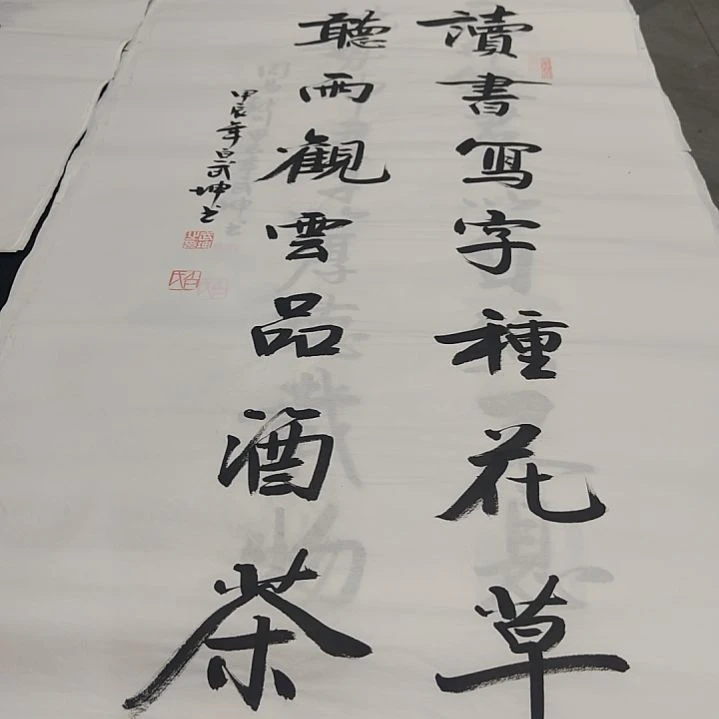 讀書写字種花草
聽雨觀雲品酒茶
甲辰年吕武坤书